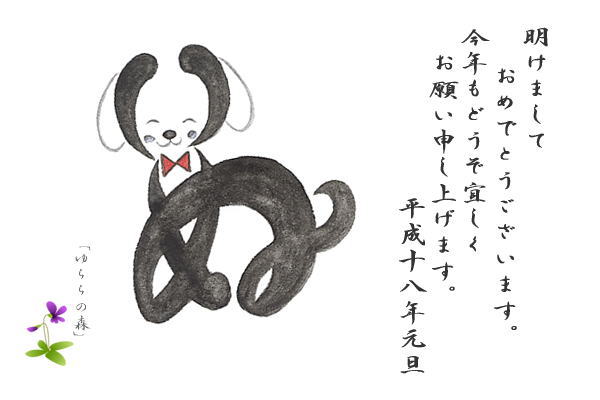 明けまして
おめでとうございます。
今年もどうぞ宜しく
お願い申し上げます。
平成十八年元旦
「ゆららの森」